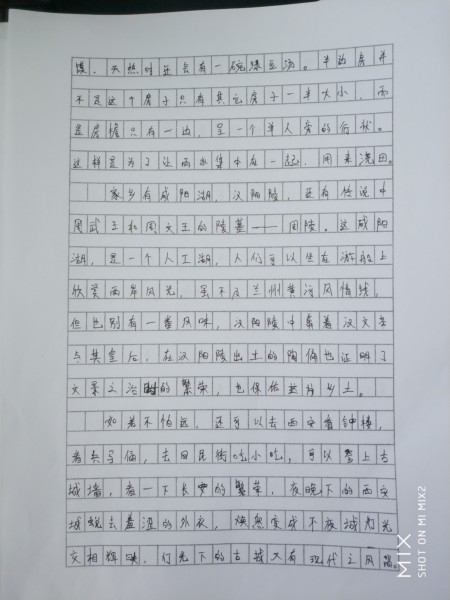 馍，天热时还会有一碗绿豆汤。半边房并
不是这个房子只有其它房子一半大小，而
是房檐只有一边，呈一个单人旁的形状。
这样是为了让雨水集中在一起，用来浇田。
家乡有咸阳湖，汉阳陵，还有传说中
周武王和周文王的陵墓——周陵。这咸阳
湖，是一个人工湖，人们可以坐在游船上
欣赏两岸风光，虽不及兰州黄河风情线，
但也别有一番风味，汉阳陵中葬着汉文帝
与其皇后，在汉阳陵出土的陶俑也证明了
文景之治时的繁荣，也保佑这片乡土。
如若不怕远，还可以去西安看钟楼，
看兵马俑，去回民街吃小吃，可以登上古
城墙，看一下长安的繁华，夜晚下的西安
城蜕去羞涩的外衣，焕然变成不夜城灯光
交相辉映，灯光下的古城又有现代之风器。
MIX
SHOT ON MI MIX2